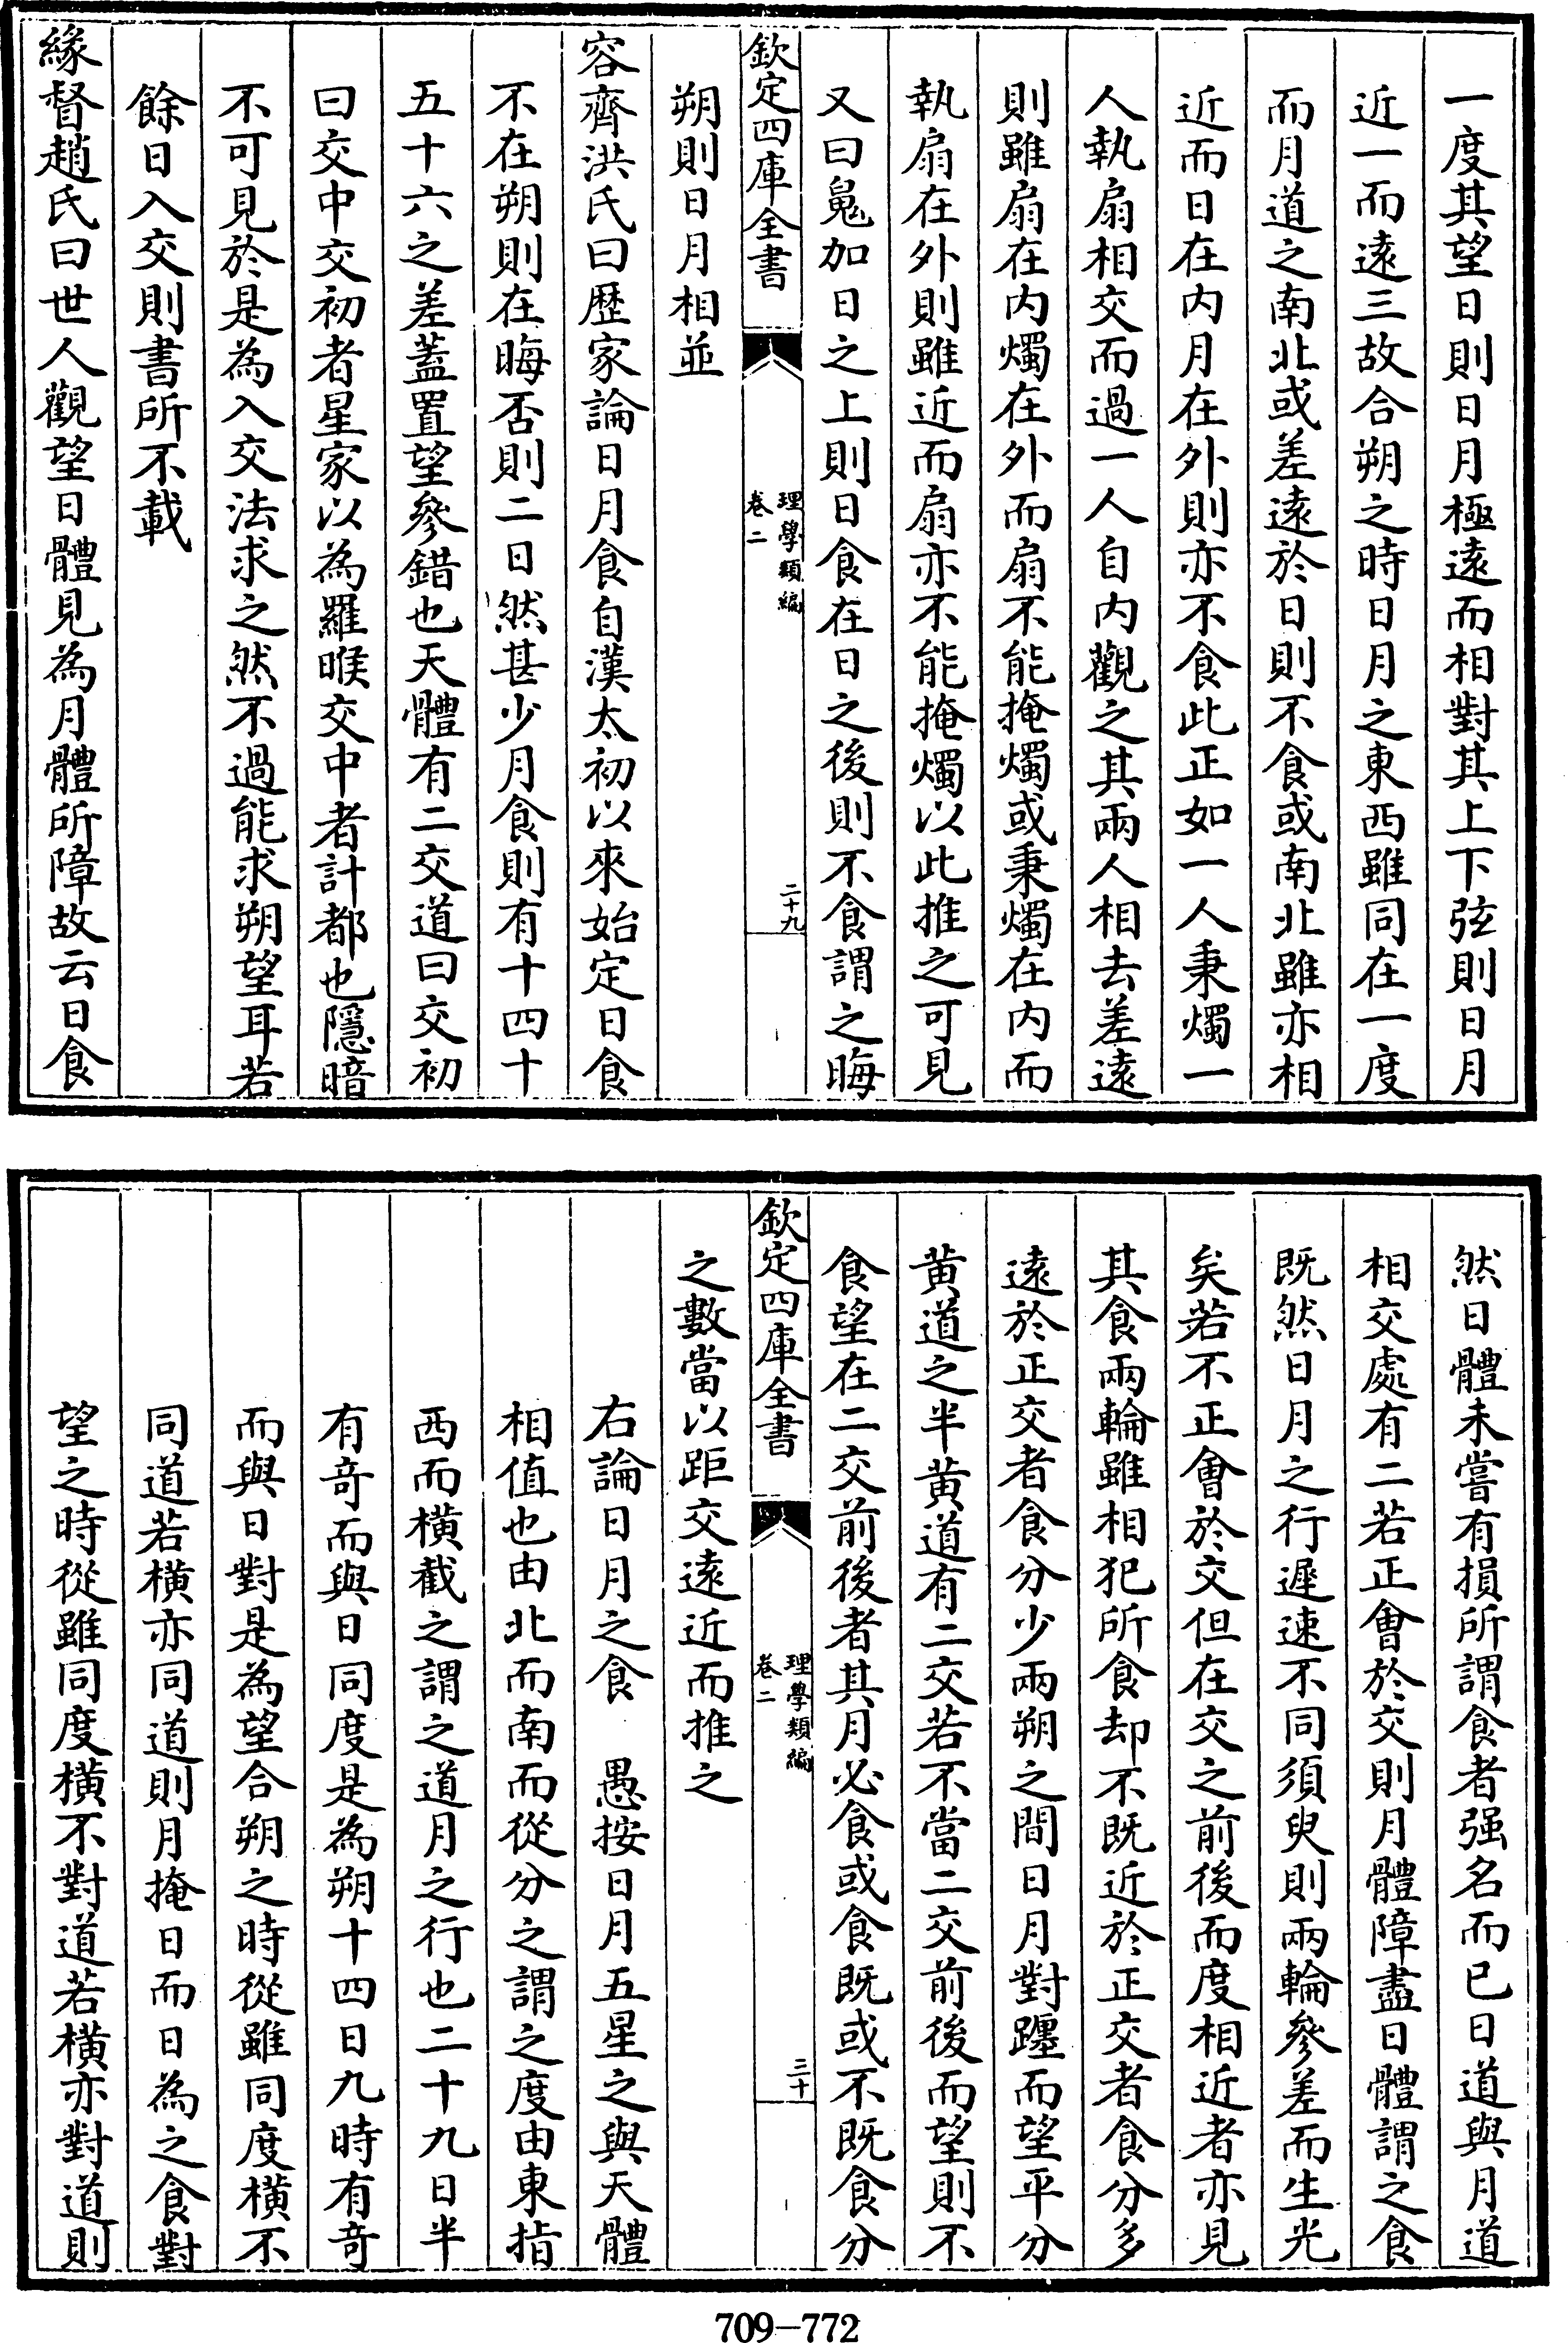 一度其望日則日月極遠而相對其上下弦則日月
近一而遠三故合朔之時日月之東西雖同在一度
而月道之南北或差遠於日則不食或南北雖亦相
近而日在内月在外則亦不食此正如一人秉燭一
人執扇相交而過一人自内觀之其兩人相去差遠
則雖扇在内燭在外而扇不能掩燭或秉燭在内而
執扇在外則雖近而扇亦不能掩燭以此推之可見
又曰鬼加日之上則日食在日之後則不食謂之晦
朔則日月相並
欽定四庫全書
理學類編
卷二
二十九
容齊洪氏曰歴家論日月食自漢太初以來始定日食
不在朔則在晦否則二日然甚少月食則有十四十
五十六之差蓋置望參錯也天體有二交道曰交初
曰交中交初者星家以為羅㬋交中者計都也隱暗
不可見於是為入交法求之然不過能求朔望耳若
餘日入交則書所不載
緣督趙氏曰世人觀望日體見為月體所障故云日食
然日體未嘗有損所謂食者强名而已日道與月道
相交處有二若正會於交則月體障盡日體謂之食
既然日月之行遲速不同須臾則兩輪參差而生光
矣若不正會於交但在交之前後而度相近者亦見
其食兩輪雖相犯所食却不既近於正交者食分多
遠於正交者食分少兩朔之間日月對躔而望平分
黄道之半黄道有二交若不當二交前後而望則不
食望在二交前後者其月必食或食既或不既食分
之數當以距交遠近而推之
欽定四庫全書
理學類編
卷二
三十
右論日月之食　愚按日月五星之與天體
相值也由北而南而從分之謂之度由東指
西而横截之謂之道月之行也二十九日半
有竒而與日同度是為朔十四日九時有竒
而與日對是為望合朔之時從雖同度横不
同道若横亦同道則月掩日而日為之食對
望之時從雖同度横不對道若横亦對道則
709-772